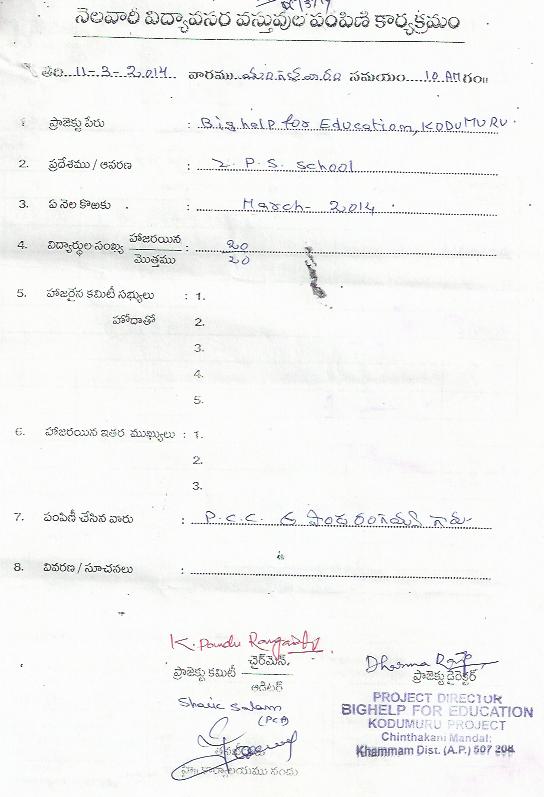 నెలవారీ విద్యావసర వస్తువుల పంపిణీ కార్యక్రమం
తేది 11-3-2014 వారము మంగళవారం సమయం 10 AM గం॥
1. ప్రాజెక్టు పేరు : Bighelp for Education, KODUMURU.
2. ప్రదేశము / ఆవరణ : Z. P. S. School
3. ఏ నెల కొఱకు : March - 2014
4. విద్యార్థుల సంఖ్య హాజరయిన : 20
మొత్తము 20
5. హాజరైన కమిటీ సభ్యులు : 1.
హోదాతో 2.
3.
4.
5.
6. హాజరయిన ఇతర ముఖ్యులు : 1.
2.
3.
7. పంపిణీ చేసిన వారు : P.C.C. పాండు రంగయ్య గారు
8. వివరణ / సూచనలు :
K. Pandu
ప్రాజెక్టు కమిటీ ఛైర్మెన్,
ఆడిటర్
Dharma Raju
ప్రాజెక్టు డైరెక్టర్
Shaik Salam
PROJECT DIRECTOR
BIGHELP FOR EDUCATION
KODUMURU PROJECT
Chinthakani Mandal:
Khammam Dist. (A.P.) 507 208